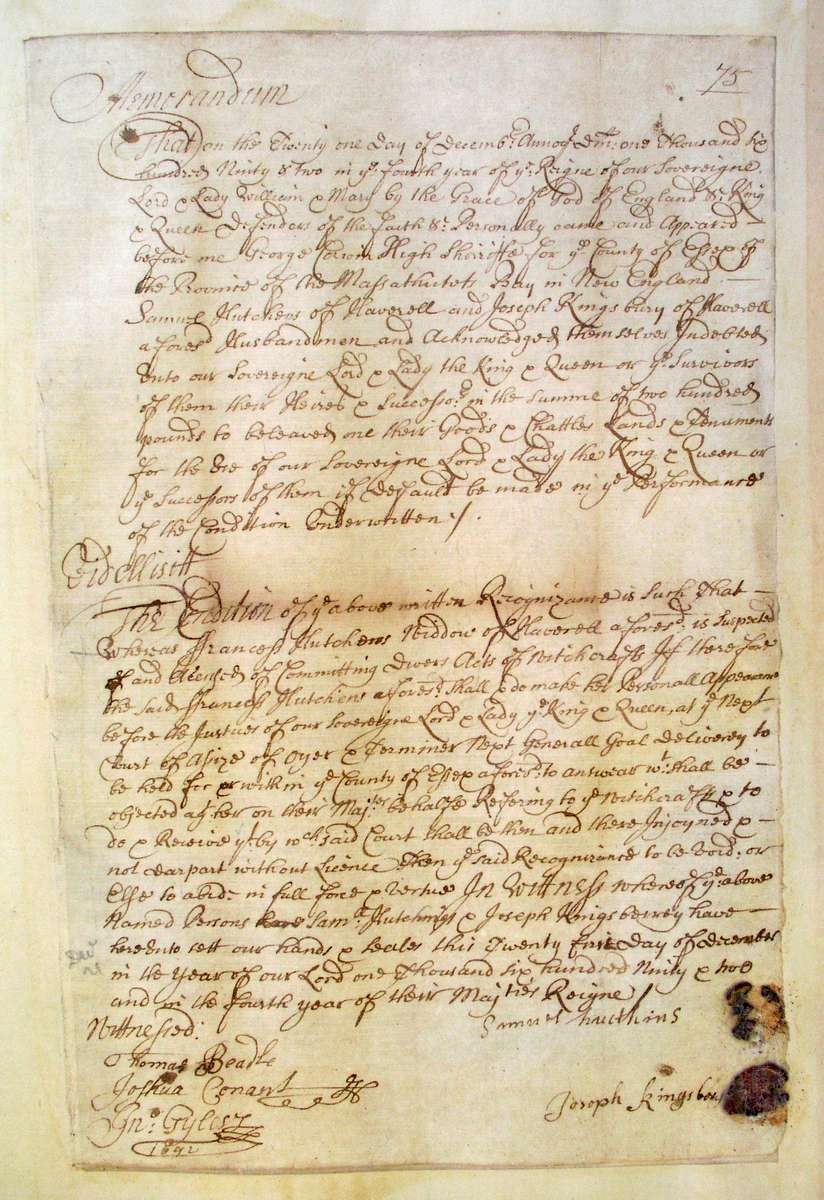 75
Memorandum
That on the Twenty one Day of Decembr Annoqe Dm: one Thousand six
hundred Ninity & two in ye fourth year of ye Reigne of our Sovereigne
Lord & Lady William & Mary by the Grace of God of England &c King
& Queen Defenders of the faith &c Personally came and Appeared
before me George Corwin High Sheriffe for ye County of Essex of
the Province of the Massathutets Bay in New England
Samuel Hutchens of Haverell and Joseph Kingsbury of Haverell
aforesd Husbandmen and Acknowledged themselves Indebted
unto our Sovereigne Lord & Lady the King & Queen or ye Survivors
of them their Heires & Successors in the Summe of two hundred
pounds to be leaved one their Goods & Chattles Lands & Tenuments
for the Use of our Sovereigne Lord & Lady the King & Queen or
ye Successors of them if default be made in ye Performance
of the Condition Underwritten /.
Videllisitt
The Condition of ye above written Recognizance is Such That
Whereas Francess Hutchens Widdow of Haverell aforesd: is Suspected
of and Accused of Committing divers Acts of Witchcrafts If therefore
the said Francess Hutchens aforesd: Shall & do make her Personall Appearance
before the Justices of our Sovereigne Lord & Lady ye King & Queen, at ye Next
Court of Asize of Oyer & Terminer Next Generall Goal Deliverey to
be held for or within ye County of Essex aforesd: to answear wt shall be
objected agst her on their Majtes behalfe Refering to ye Witchcraft & to
do & Receive yt by wch said Court shall be then and there Injoyned &
not dearpart without Licence then ye said Recognizance to be void: or
Else to abide in full force & vertue In Witness whereof ye above
Named Persons have Samll Hutchings & Joseph Kingsberrey have
hereunto sett our hands & Seales this Twenty first Day of december
in the Year of our Lord one Thousand six hundred Ninity & two
and in the fourth year of their Majties Reigne /
Witnessed:
Samuel huthins
Thomas Beadle
Joshua Conant
Joseph Kingsbery
Jno: Gyles
1692